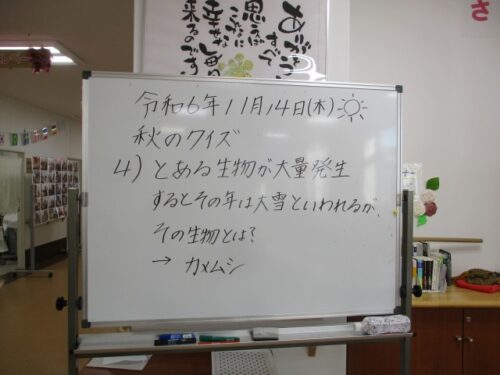 ありがとう
すべて
思えば
こんなに
幸せな毎日
来るのです
さ
令和6年11月14日(木)☀
秋のクイズ
4) とある生物が大量発生
するとその年は大雪といわれるが、
その生物とは?
→ カメムシ